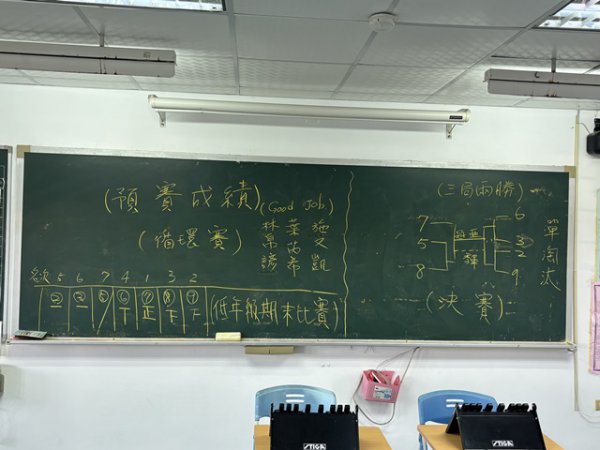 (預賽成績)
(循環賽)
(Good Job)
林 葉 施
帛 芮 又
諺 希 凱
5 6 7 4 1 3 2
② ② ⑤ ⑥ ⑦ ⑧ ⑦
(低年級期末比賽)
(三局兩勝)
7
5
8
6
③
2
9
單淘汰
(決賽)
STIGA
STIGA